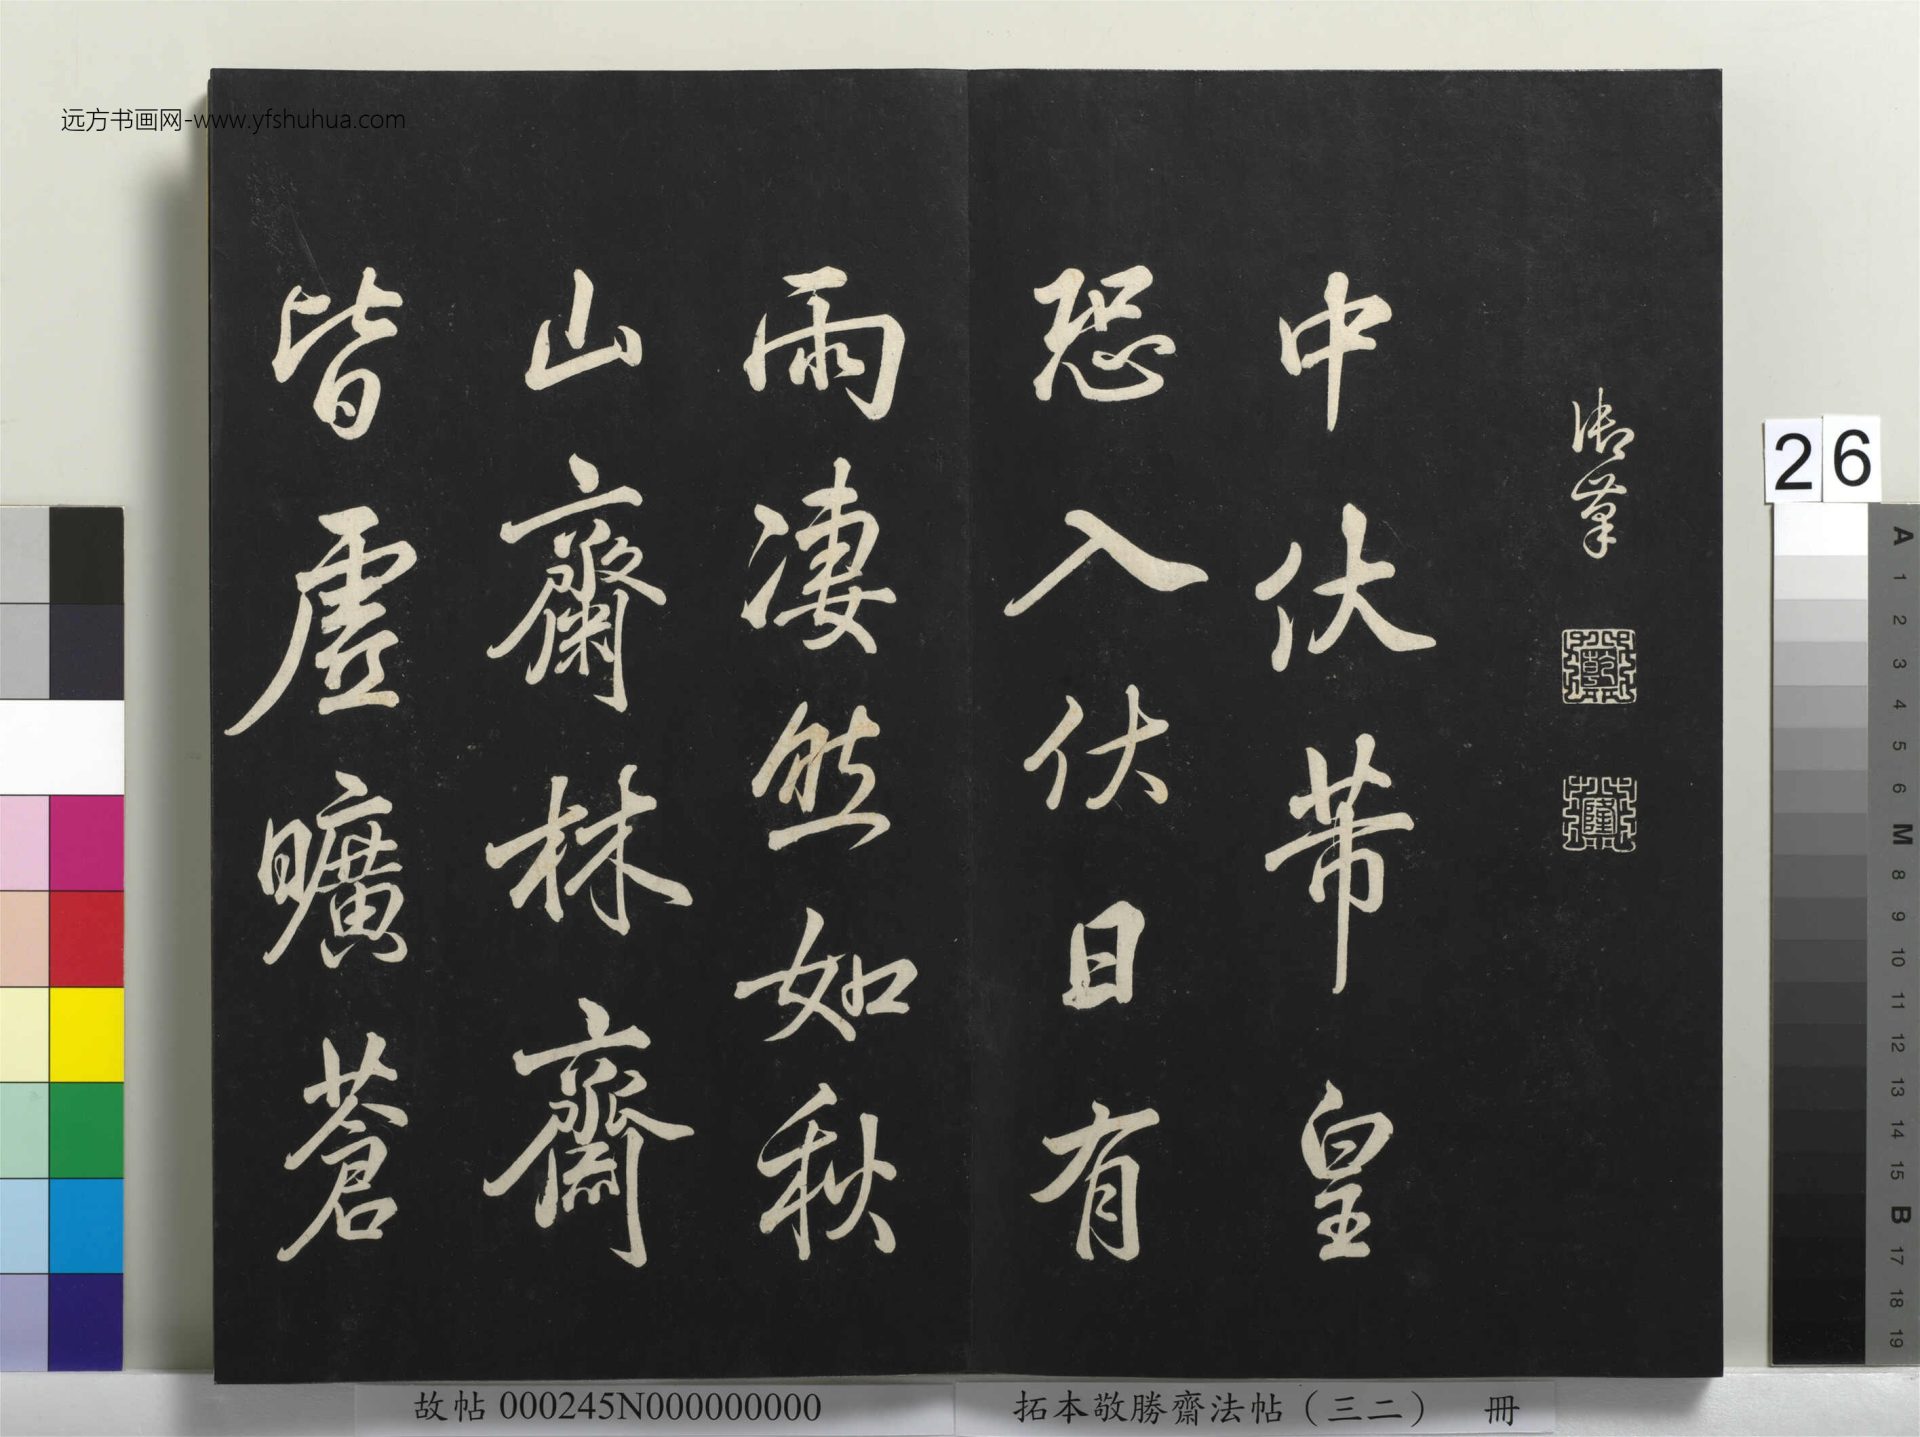 远方书画网-www.yfshuhua.com
御筆
乾
隆
中伏芾皇
恐入伏日有
雨凄然如秋
山齋林齋
皆虛曠蒼
26
A 1 2 3 4 5 6 M 8 9 10 11 12 13 14 15 B 17 18 19
故帖 000245N000000000
拓本敬勝齋法帖（三二） 冊